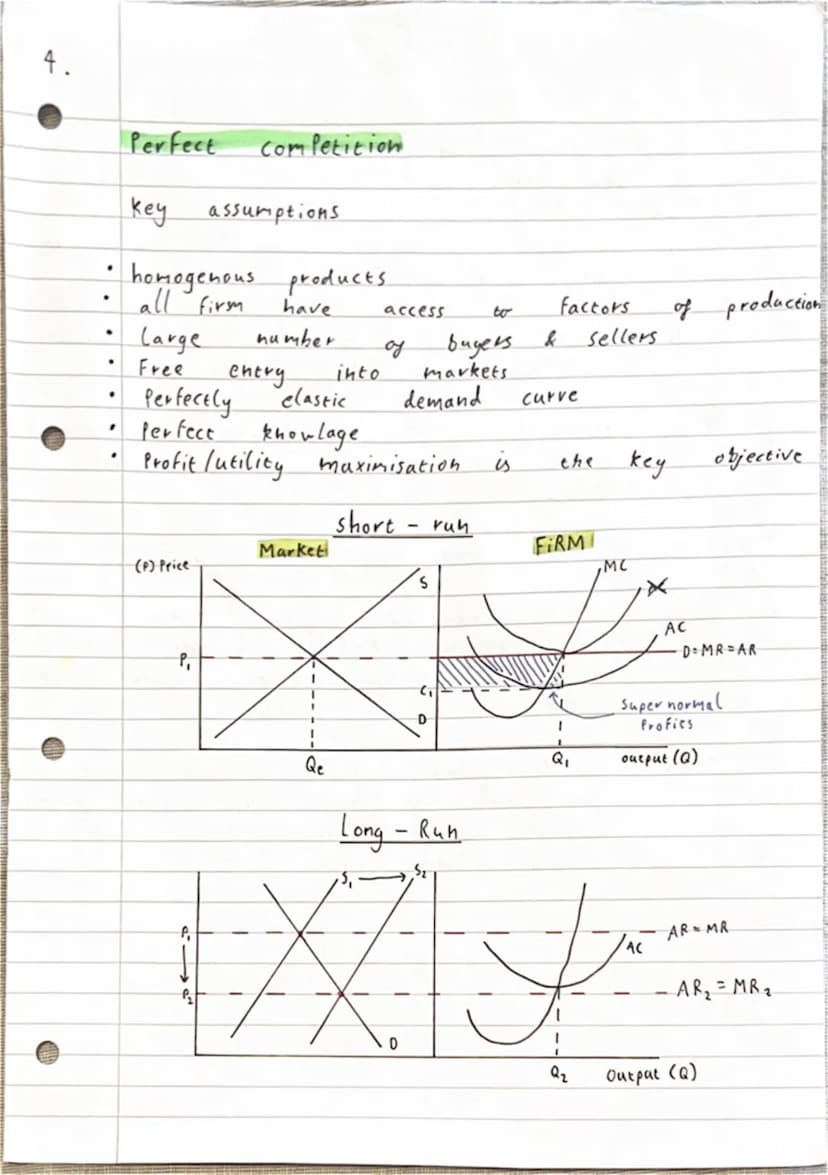 4.
Perfect competition
key assumptions
• homogenous products
• all firsm have access to factors of production
• Large number of buyers & sellers
• Free entry into markets
• Perfectly elastic demand curve
• Perfect knowlage
• Profit/utility maximisation is the key objective
Short - run
Market FiRM
(P) Price S MC
AC
P₁ D=MR=AR
C₁
D Super normal
Profits
Qe Q₁ output (Q)
Long - Run
S₁ → S₂
P₁ AR = MR
AC
P₂ AR₂ = MR₂
D
Q₂ Output (Q)